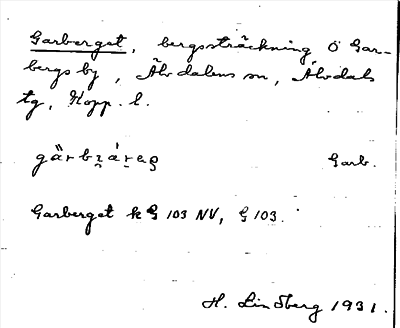 Garberget, bergssträckning Ö Gar-
bergs by, Älvdalens sn, Älvdals
tg, Kopp. l.
Garb.
Garberget k G 103 NV, G 103.
H. Lindberg 1931.